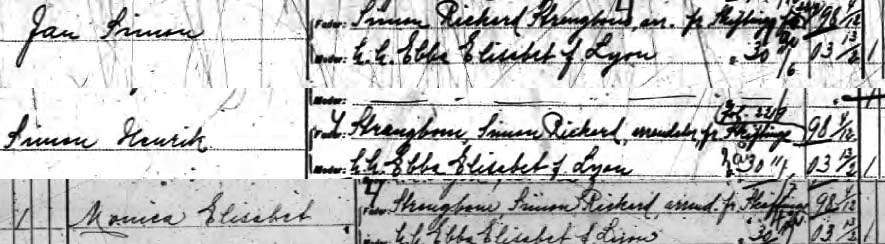 Jan Simon
Fader: Simon Rickard Strengbom, arr. fr Skeftinge 98 4/12
Moder: h. h. Ebba Elisabet f Lyon 30 03 13/2 1
Moder:
Simon Henrik
Fader: Strengbom Simon Rickard, arrendator, fr Skeftinge 98 4/12
h. h. Ebba Elisabet f Lyon 30 03 13/2 1
1 Monica Elisabet
Fader: Strengbom Simon Rickard, arrend. fr Skeftinge 98 4/12
Moder: h. h. Ebba Elisabet f Lyon 30 03 13/2